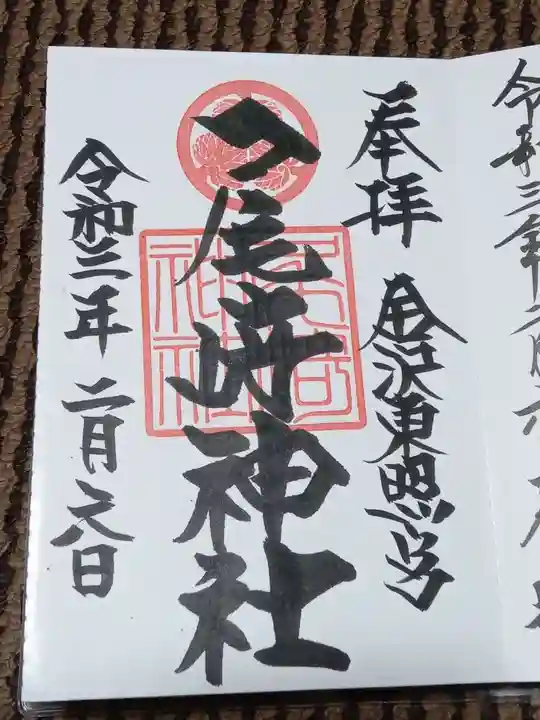 令和三年二月六
奉拝
金沢東照宮
尾崎神社
尾崎
神社
令和三年二月六日